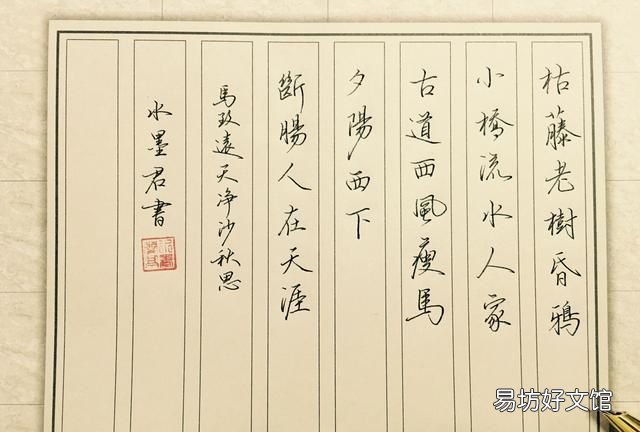 枯藤老樹昏鴉
小橋流水人家
古道西風瘦馬
夕陽西下
斷腸人在天涯
馬致遠天净沙秋思
水墨君書
易坊好文馆